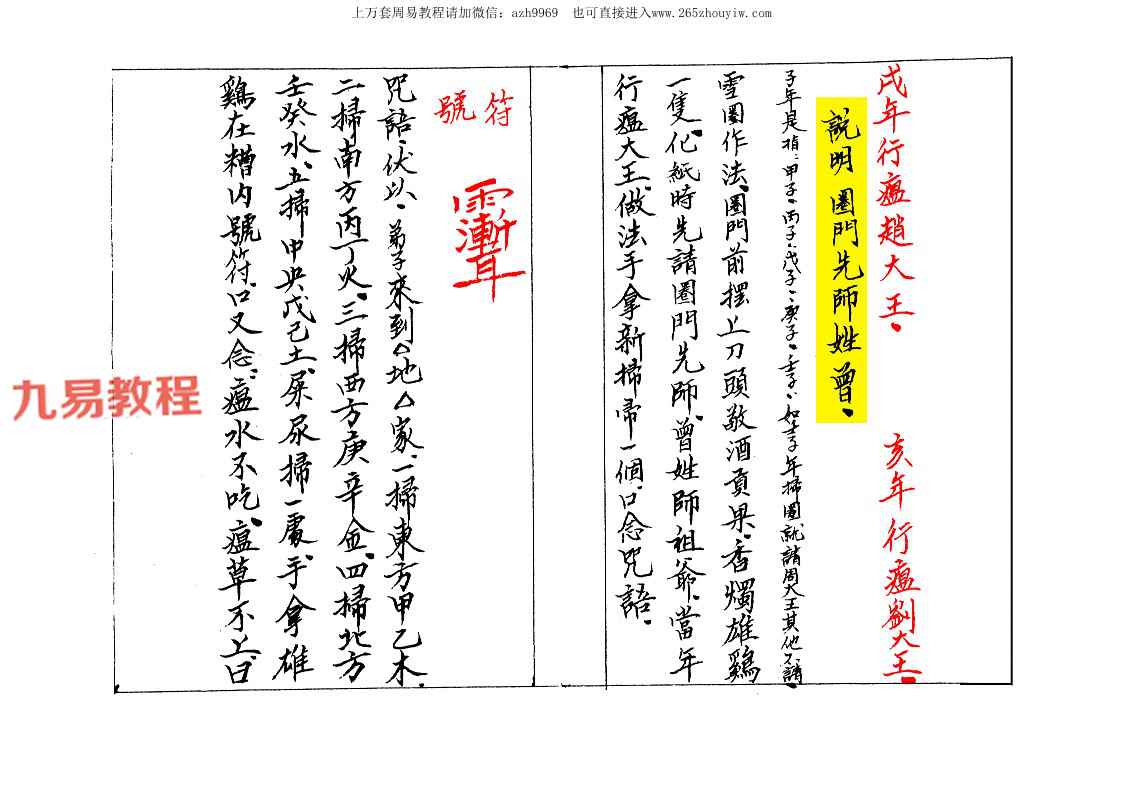 上万套周易教程请加微信：azh9969　也可直接进入www.265zhouyiw.com
戌年行瘟趙大王、　亥年行瘟劉大王、
説明圈門先師姓曾、
子年是指：甲子、丙子、戊子、庚子、壬子、如壬子年掃圈就請周大王其他不請、
雪圈作法、圈門前擺上刀頭敬酒貢果、香燭雄鷄
一隻、化紙時先請圈門先師、曾姓師祖爺、當年
行瘟大王、做法手拿新掃帚一個、口念咒語、
符號
咒語、伏以、弟子來到△地△家、一掃東方甲乙木、
二掃南方丙丁火、三掃西方庚辛金、四掃北方
壬癸水、五掃中央戊己土、屎尿掃一處、手拿雄
鷄在糟内號符、口又念：瘟水不吃、瘟草不上口、
九易教程